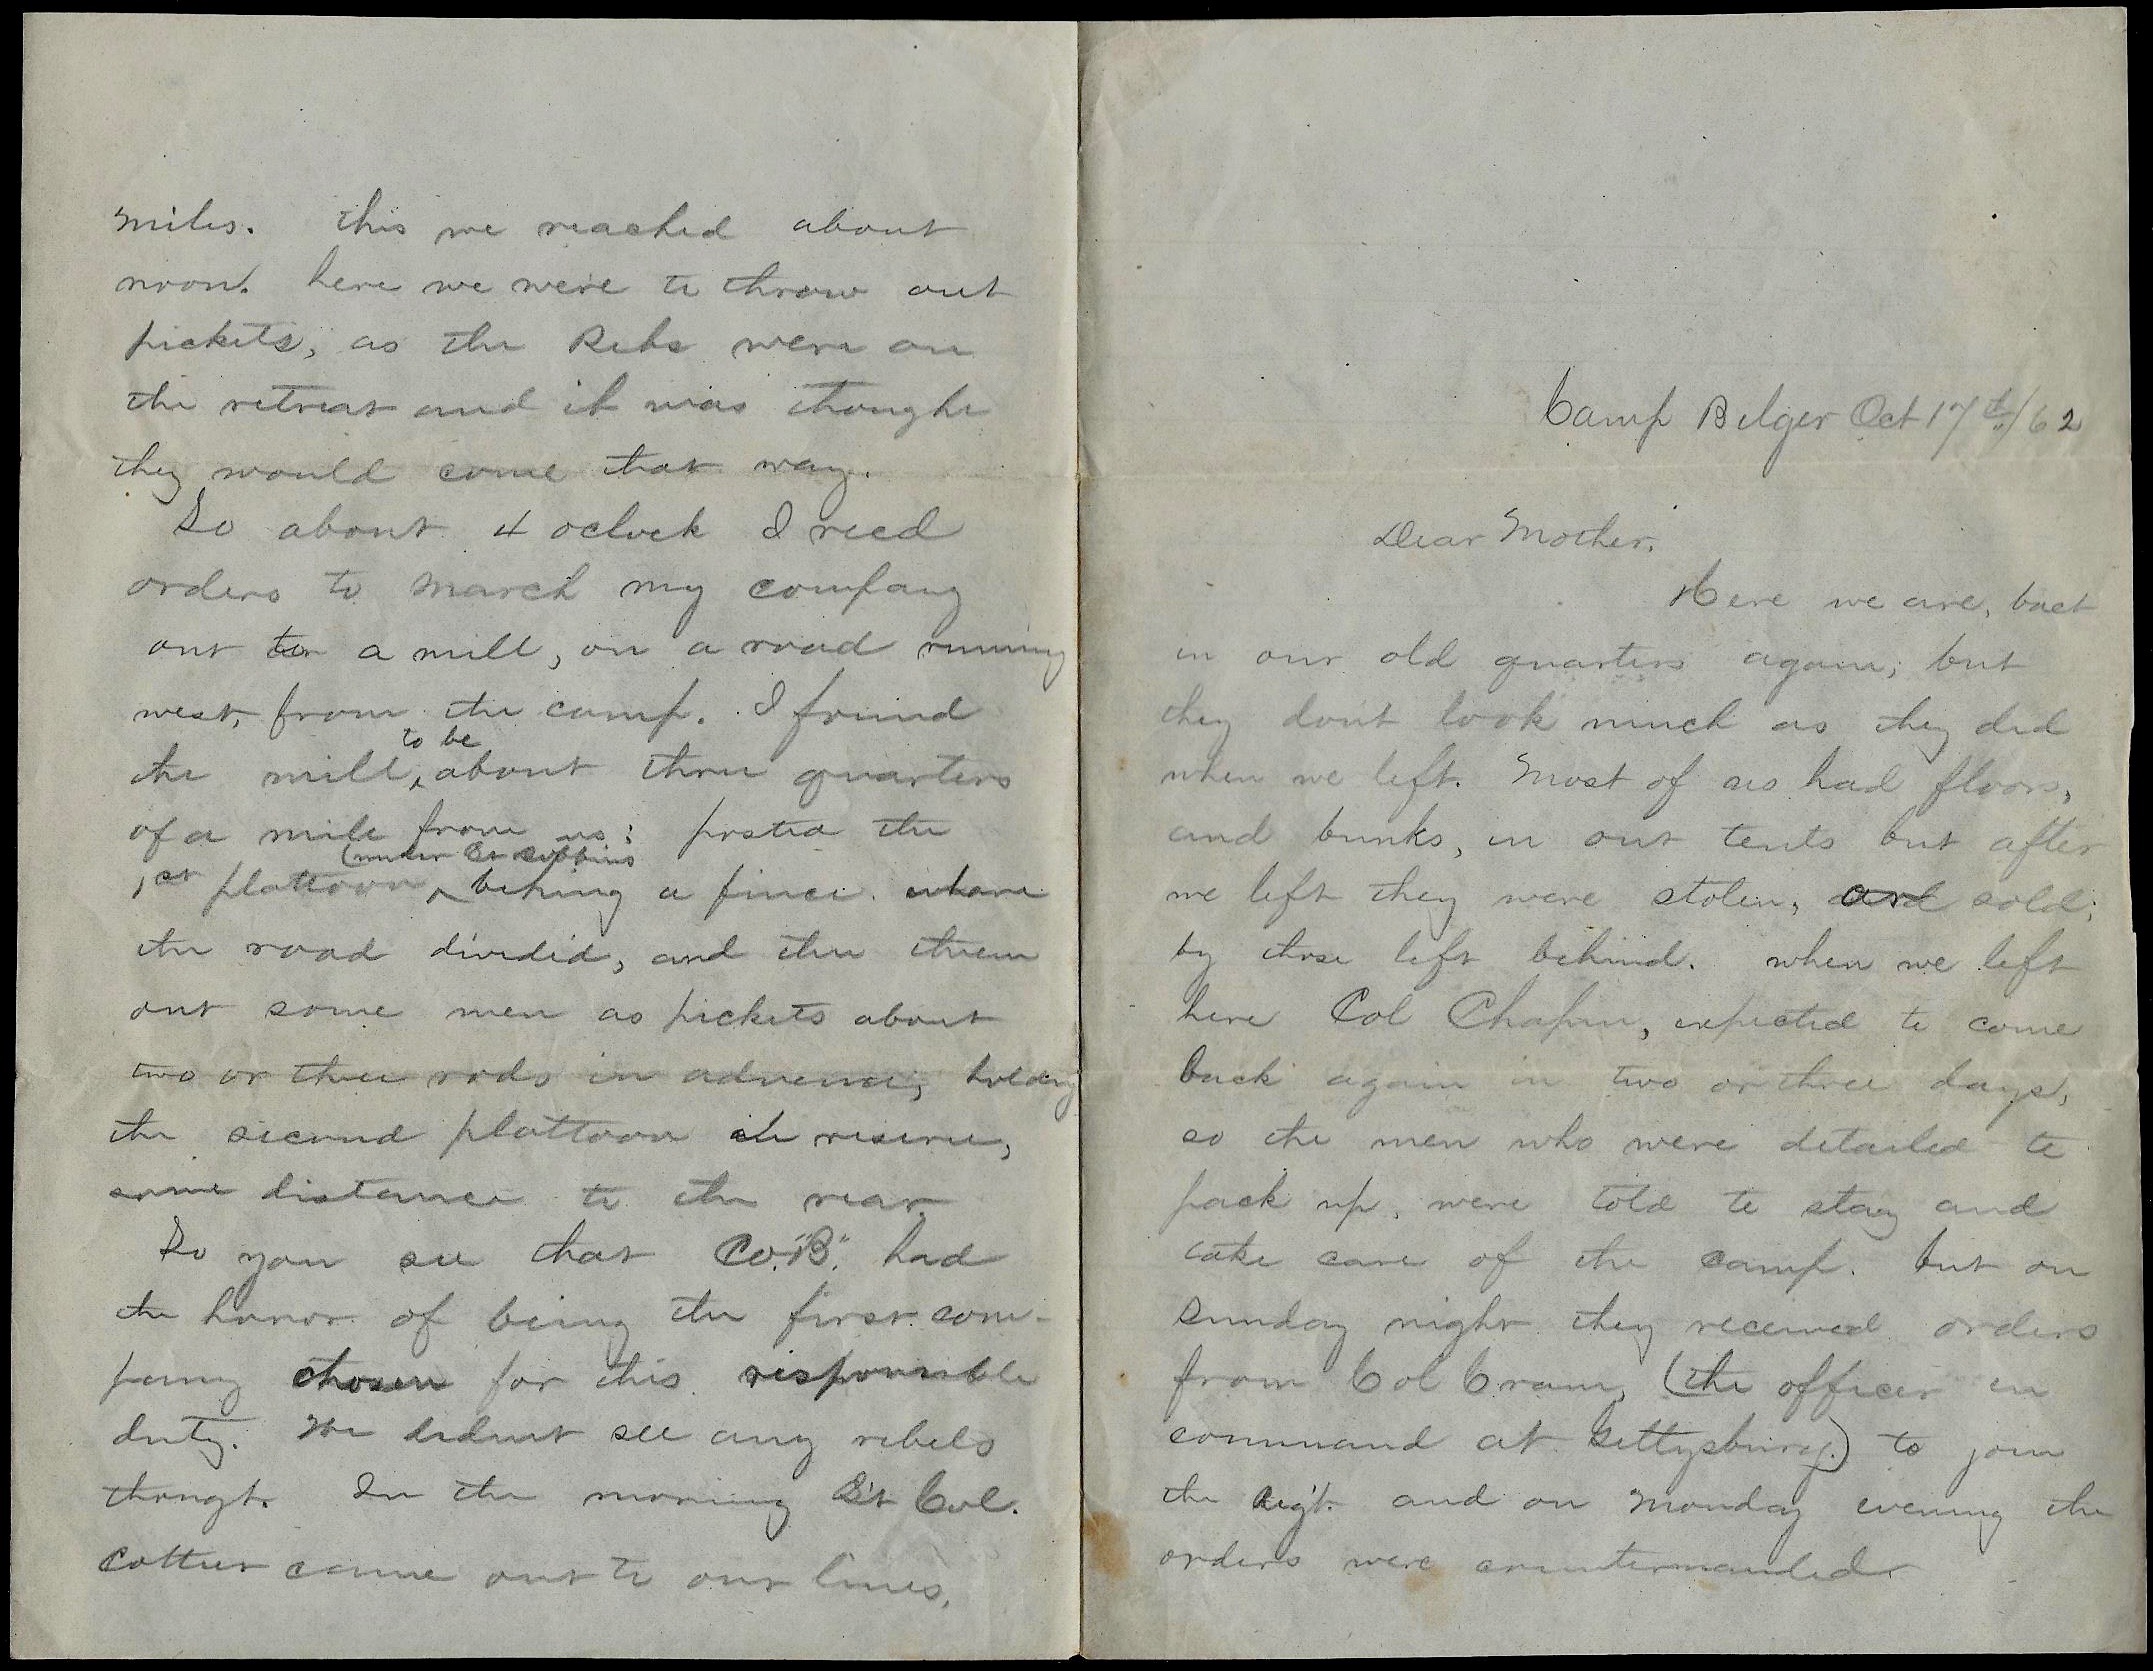 Camp Belger Oct 17th/62
Dear Mother.
Here we are, back
in our old quarters again; but
they dont look much as they did
when we left. Most of us had floors,
and bunks, in out tents but after
we left they were stolen, and sold;
by those left behind. when we left
here Col Chapin, expected to come
back again in two or three days,
so the men who were detailed to
pack up, were told to stay and
take care of the camp. but on
Sunday night they received orders
from Col Cram, (the officer in
command at Gettysburg.) to join
the Regt. and on Monday evening the
orders were countermanded
miles. this we reached about
noon. here we were to throw out
pickets, as the Rebs were on
the retreat and it was thought
they would come that way.
So about 4 oclock I recd
orders to march my company
out to a mill, on a road running
west, from the camp. I found
the mill, to be about three quarters
of a mile from us; posted the
1st plattoon (under Lt Gibbins behing a fince where
the road divided, and then threw
out some men as pickets about
two or three rods in advance, holding
the second plattoon in reserve,
some distance to the rear
So you see that Co. "B". had
the honor of being the first com-
pany chosen for this responsible
duty. We didnot see any rebels
thought. In the morning Lt Col.
Cottier came out to our lines,